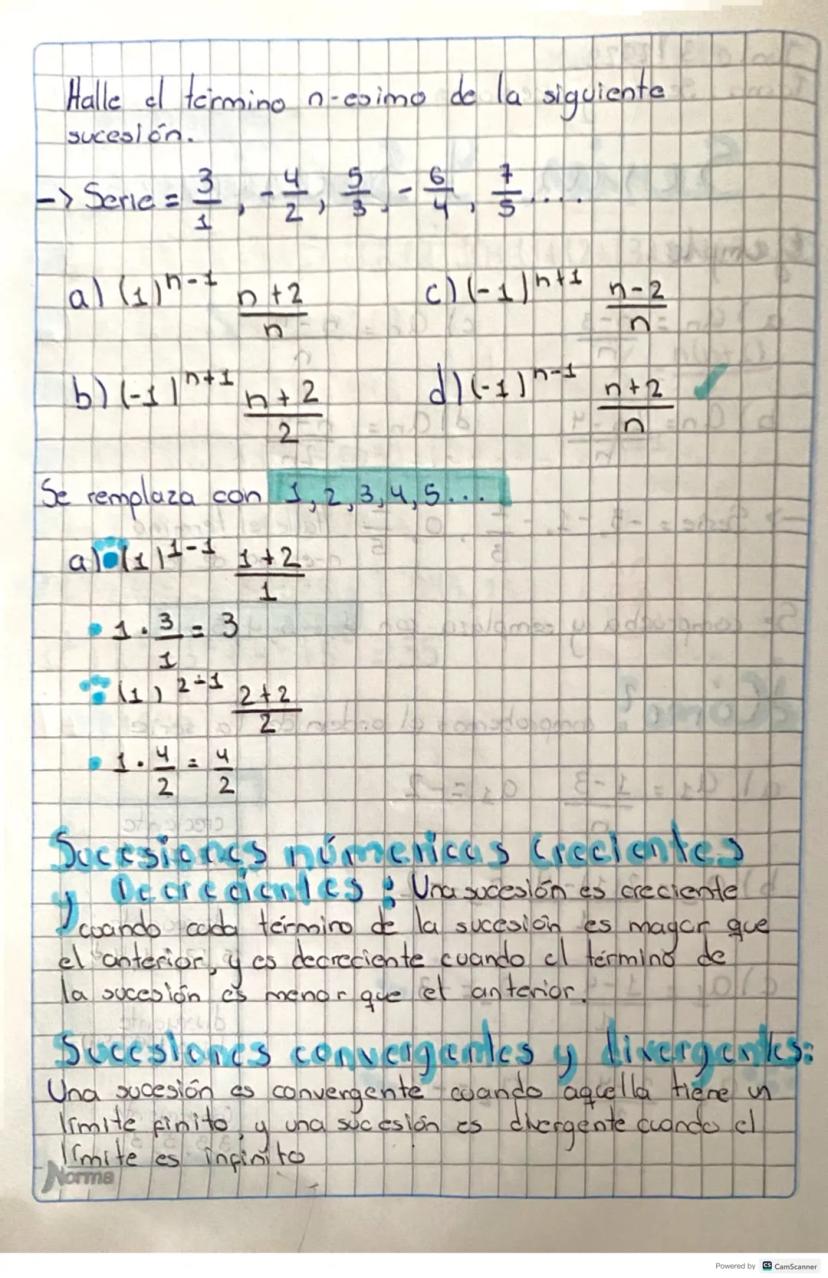 Halle el término n-esimo de la siguiente
sucesión.
-> Serie = 3/1, -4/2, 5/3, -6/4, 7/5....
a) (1)^n-1 n+2/n c) (-1)^n+1 n-2/n
b) (-1)^n+1 n+2/2 d) (-1)^n-1 n+2/n ✓
Se remplaza con 1, 2, 3, 4, 5...
a) • (1)^1-1 1+2/1
• 1 · 3/1 = 3
(1)^2-1 2+2/2
• 1 · 4/2 = 4/2
Sucesiones númericas Crecientes
y Decrecientes: Una sucesión es creciente
cuando cada término de la sucesión es mayor que
el anterior, y es decreciente cuando el término de
la sucesión es menor que el anterior.
Sucesiones convergentes y divergentes:
Una sucesión es convergente cuando aquella tiene un
límite finito, y una sucesión es divergente cuando el
límite es infinito
Norma
Powered by CS CamScanner